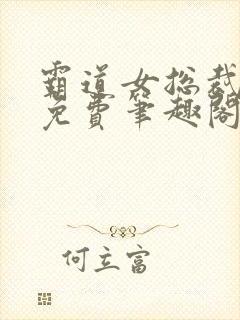 霸道女总裁
免费笔趣阁
何立富